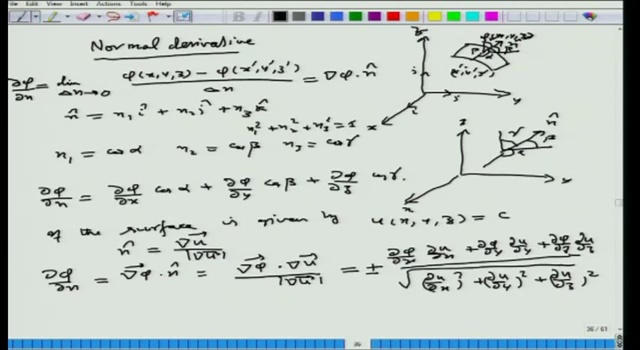 Edit View Insert Actions Tools Help
Normal derivative
∂φ/∂n = lim Δn→0 (φ(x,y,z) − φ(x',y',z'))/Δn = ∇φ·n̂
n̂ = n₁î + n₂ĵ + n₃k̂
n₁² + n₂² + n₃² = 1
n₁ = cosα n₂ = cosβ n₃ = cosγ
∂φ/∂n = ∂φ/∂x cosα + ∂φ/∂y cosβ + ∂φ/∂z cosγ.
of the surface is given by u(x,y,z) = c
n̂ = ∇u/|∇u|
∂φ/∂n = ∇φ·n̂ = ∇φ·∇u/|∇u| = ± (∂φ/∂x ∂u/∂x + ∂φ/∂y ∂u/∂y + ∂φ/∂z ∂u/∂z)/√((∂u/∂x)² + (∂u/∂y)² + (∂u/∂z)²)
z
φ(x,y,z)
(x',y',z')
y
x
z
n̂
γ
β
α
y
x
36 / 61
36